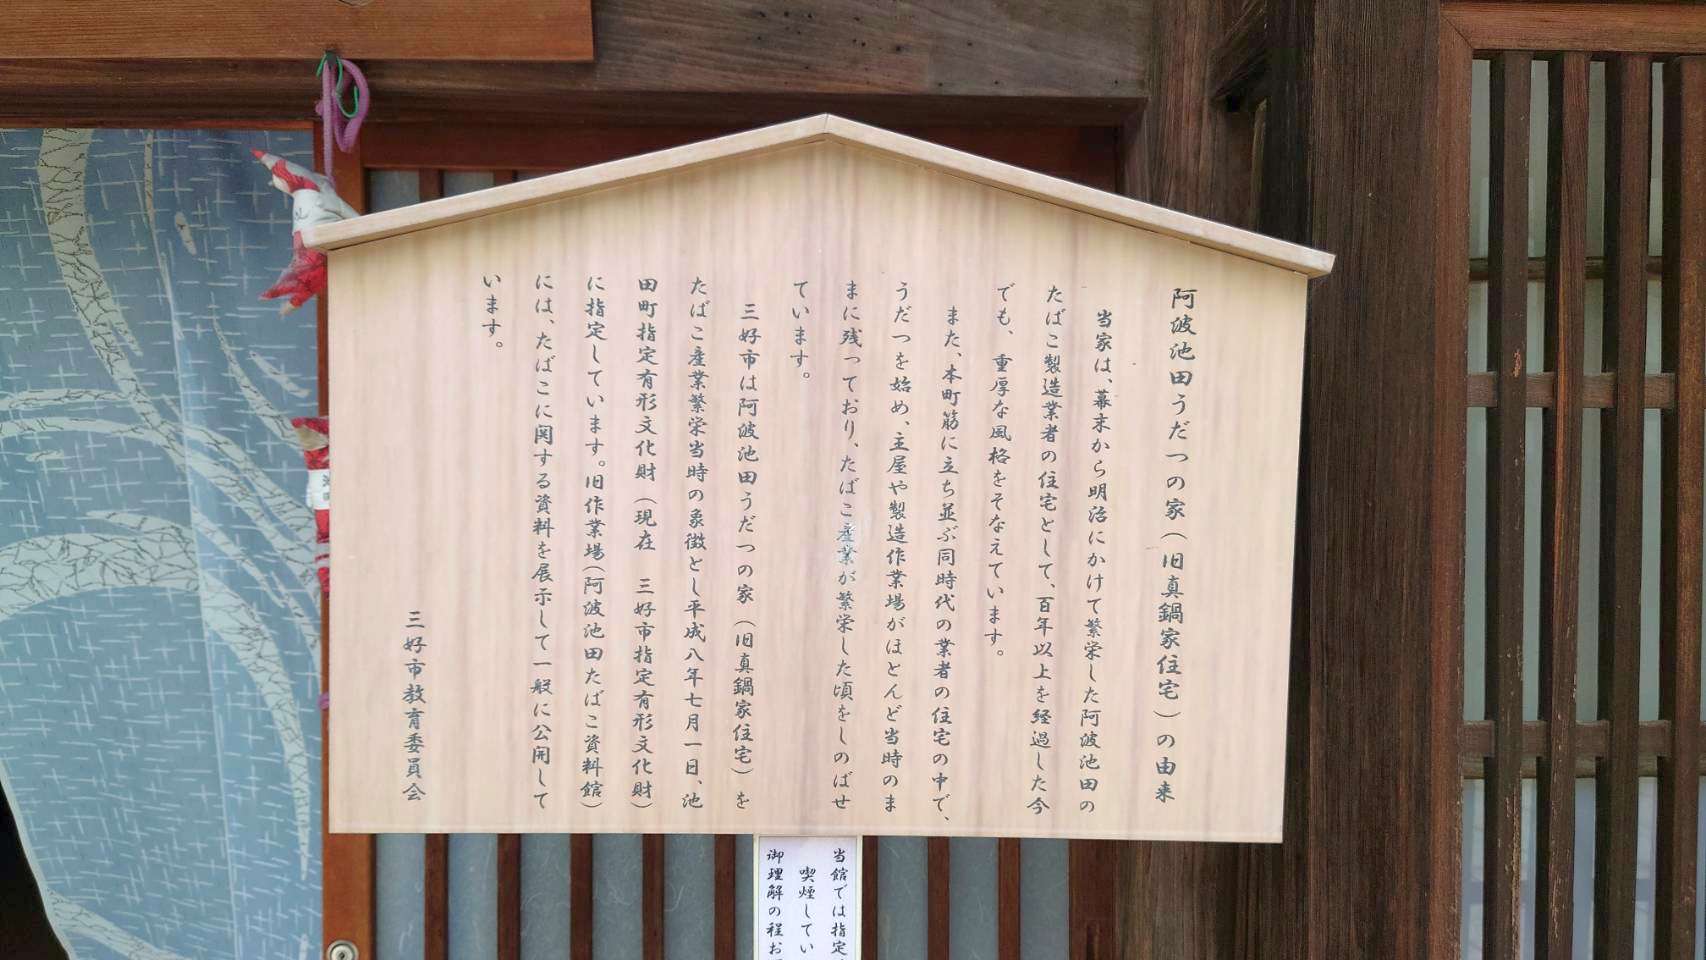 阿波池田うだつの家(旧真鍋家住宅)の由来
当家は、幕末から明治にかけて繁栄した阿波池田の
たばこ製造業者の住宅として、百年以上を経過した今
でも、重厚な風格をそなえています。
また、本町筋に立ち並ぶ同時代の業者の住宅の中で、
うだつを始め、主屋や製造作業場がほとんど当時のま
まに残っており、たばこ産業が繁栄した頃をしのばせ
ています。
三好市は阿波池田うだつの家(旧真鍋家住宅)を
たばこ産業繁栄当時の象徴とし平成八年七月一日、池
田町指定有形文化財(現在 三好市指定有形文化財)
に指定しています。旧作業場(阿波池田たばこ資料館)
には、たばこに関する資料を展示して一般に公開して
います。
三好市教育委員会
当館では指定
喫煙してい
御理解の程お